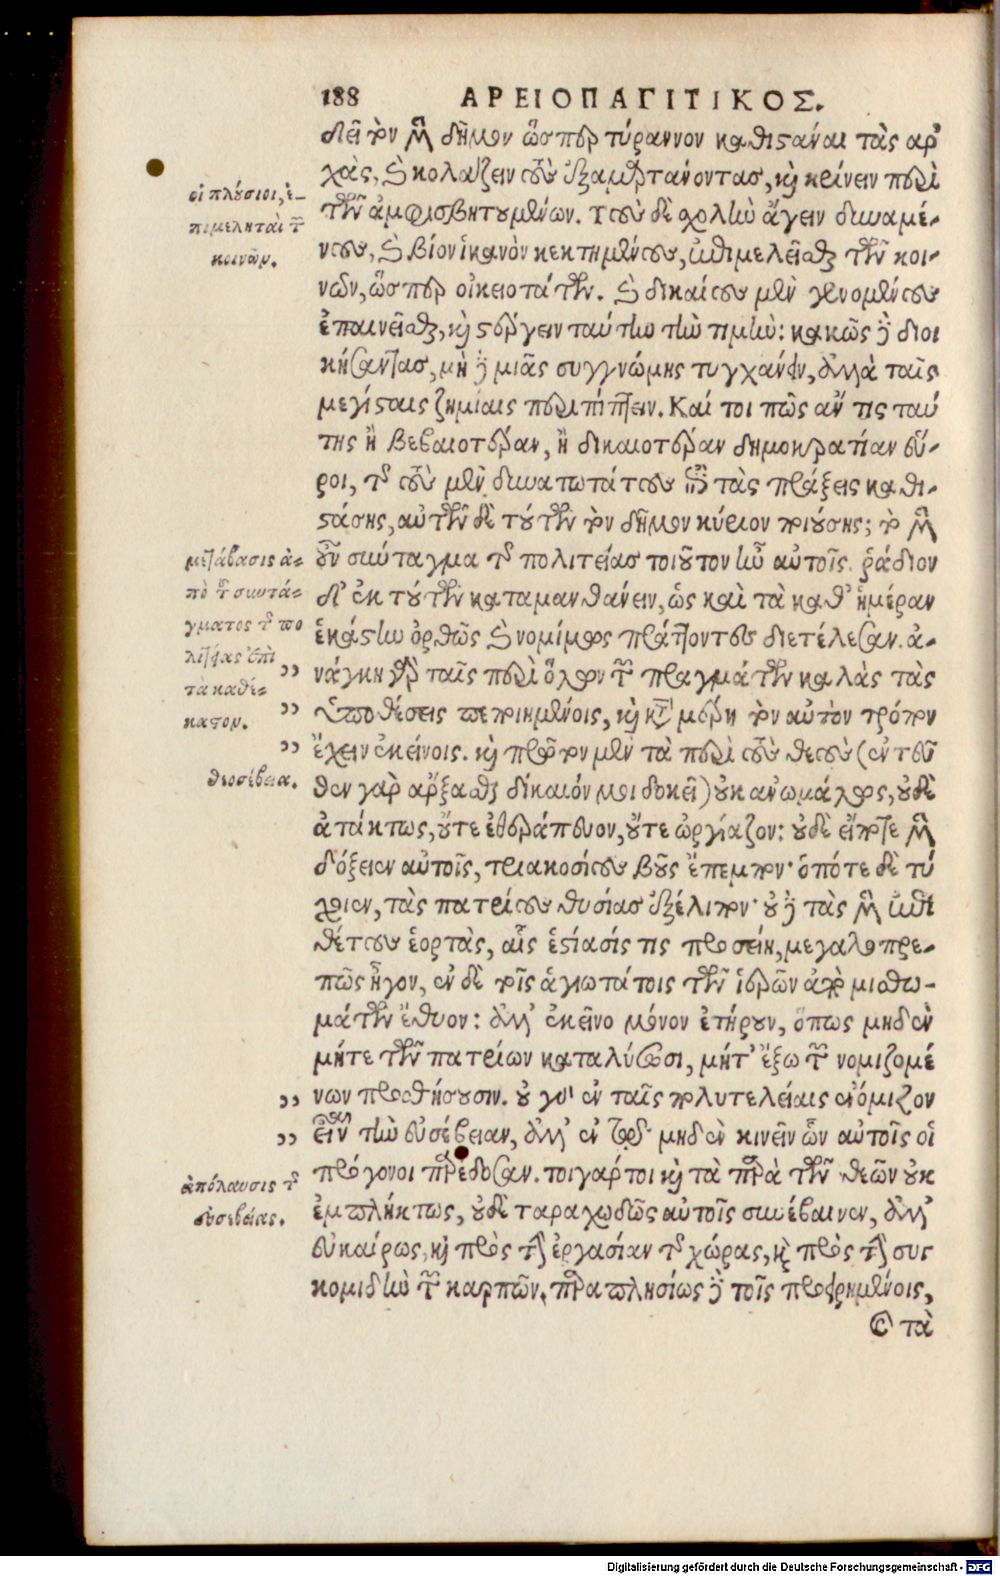 188 ΑΡΕΙΟΠΑΓΙΤΙΚΟΣ.
δεῖ τὸν μὲν δῆμον ὥσπερ τύραννον καθιστάναι τὰς ἀρ-
χὰς, καὶ κολάζειν τοὺς ἐξαμαρτάνοντας, καὶ κρίνειν περὶ
τῶν ἀμφισβητουμένων. τοὺς δὲ σχολὴν ἄγειν δυναμέ-
νους, καὶ βίον ἱκανὸν κεκτημένους, ἐπιμελεῖσθαι τῶν κοι-
νῶν, ὥσπερ οἰκειοτάτων. καὶ δικαίους μὲν γενομένους
ἐπαινεῖσθαι, καὶ στέργειν ταύτην τὴν τιμήν: κακῶς δὲ διοι
κήσαντας, μὴ δὲ μιᾶς συγγνώμης τυγχάνειν, ἀλλὰ ταῖς
μεγίσταις ζημίαις περιπίπτειν. Καί τοι πῶς ἄν τις ταύ
της ἢ βεβαιοτέραν, ἢ δικαιοτέραν δημοκρατίαν εὕ-
ροι, τῆς τοὺς μὲν δυνατωτάτους ἐπὶ τὰς πράξεις καθι-
στάσης, αὐτῶν δὲ τούτων τὸν δῆμον κύριον ποιούσης; τὸ μὲν
οὖν σύνταγμα τῆς πολιτείας τοιοῦτον ἦν αὐτοῖς. ῥάδιον
δ' ἐκ τούτων καταμανθάνειν, ὡς καὶ τὰ καθ' ἡμέραν
ἑκάστην ὀρθῶς καὶ νομίμως πράττοντες διετέλεσαν. ἀ-
νάγκη γὰρ ταῖς περὶ ὅλων τῶν πραγμάτων καλὰς τὰς
ὑποθέσεις πεποιημένοις, καὶ κατὰ μέρη τὸν αὐτὸν τρόπον
ἔχειν ἐκείνοις. καὶ πρῶτον μὲν τὰ περὶ τοὺς θεοὺς (ἐντεῦ
θεν γὰρ ἄρξασθαι δίκαιόν μοι δοκεῖ) οὐκ ἀνωμάλως, οὐδὲ
ἀτάκτως, οὔτε ἐθεράπευον, οὔτε ὠργίαζον: οὐδὲ εἴποτε μὲν
δόξειεν αὐτοῖς, τριακοσίους βοῦς ἔπεμπον· ὁπότε δὲ τύ
χοιεν, τὰς πατρίους θυσίας ἐξέλιπον· οὐ δὲ τὰς μὲν ἐπι
θέτους ἑορτὰς, αἷς ἑστίασίς τις προσείη, μεγαλοπρε-
πῶς ἦγον, ἐν δὲ τοῖς ἁγιωτάτοις τῶν ἱερῶν ἀπὸ μισθω-
μάτων ἔθυον: ἀλλ' ἐκεῖνο μόνον ἐτήρουν, ὅπως μηδὲν
μήτε τῶν πατρίων καταλύσωσι, μήτ' ἔξω τῶν νομιζομέ
νων προσθήσουσιν. οὐ γὰρ ἐν ταῖς πολυτελείαις ἐνόμιζον
εἶναι τὴν εὐσέβειαν, ἀλλ' ἐν τῷ μηδὲν κινεῖν ὧν αὐτοῖς οἱ
πρόγονοι παρέδοσαν. τοιγάρτοι καὶ τὰ παρὰ τῶν θεῶν οὐκ
ἐμπλήκτως, οὐδὲ ταραχωδῶς αὐτοῖς συνέβαινεν, ἀλλ'
εὐκαίρως, καὶ πρὸς τὴν ἐργασίαν τῆς χώρας, καὶ πρὸς τὴν συγ
κομιδὴν τῶν καρπῶν. παραπλησίως δὲ τοῖς προειρημένοις,
καὶ τὰ
οἱ πλούσιοι, ἐ-
πιμεληταὶ τῶν
κοινῶν.
μετάβασις ἀ-
πὸ τοῦ συντά-
γματος τῆς πο
λιτείας ἐπὶ
τὰ καθέ-
καστον.
θεοσέβεια.
ἀπόλαυσις τῆς
εὐσεβείας.